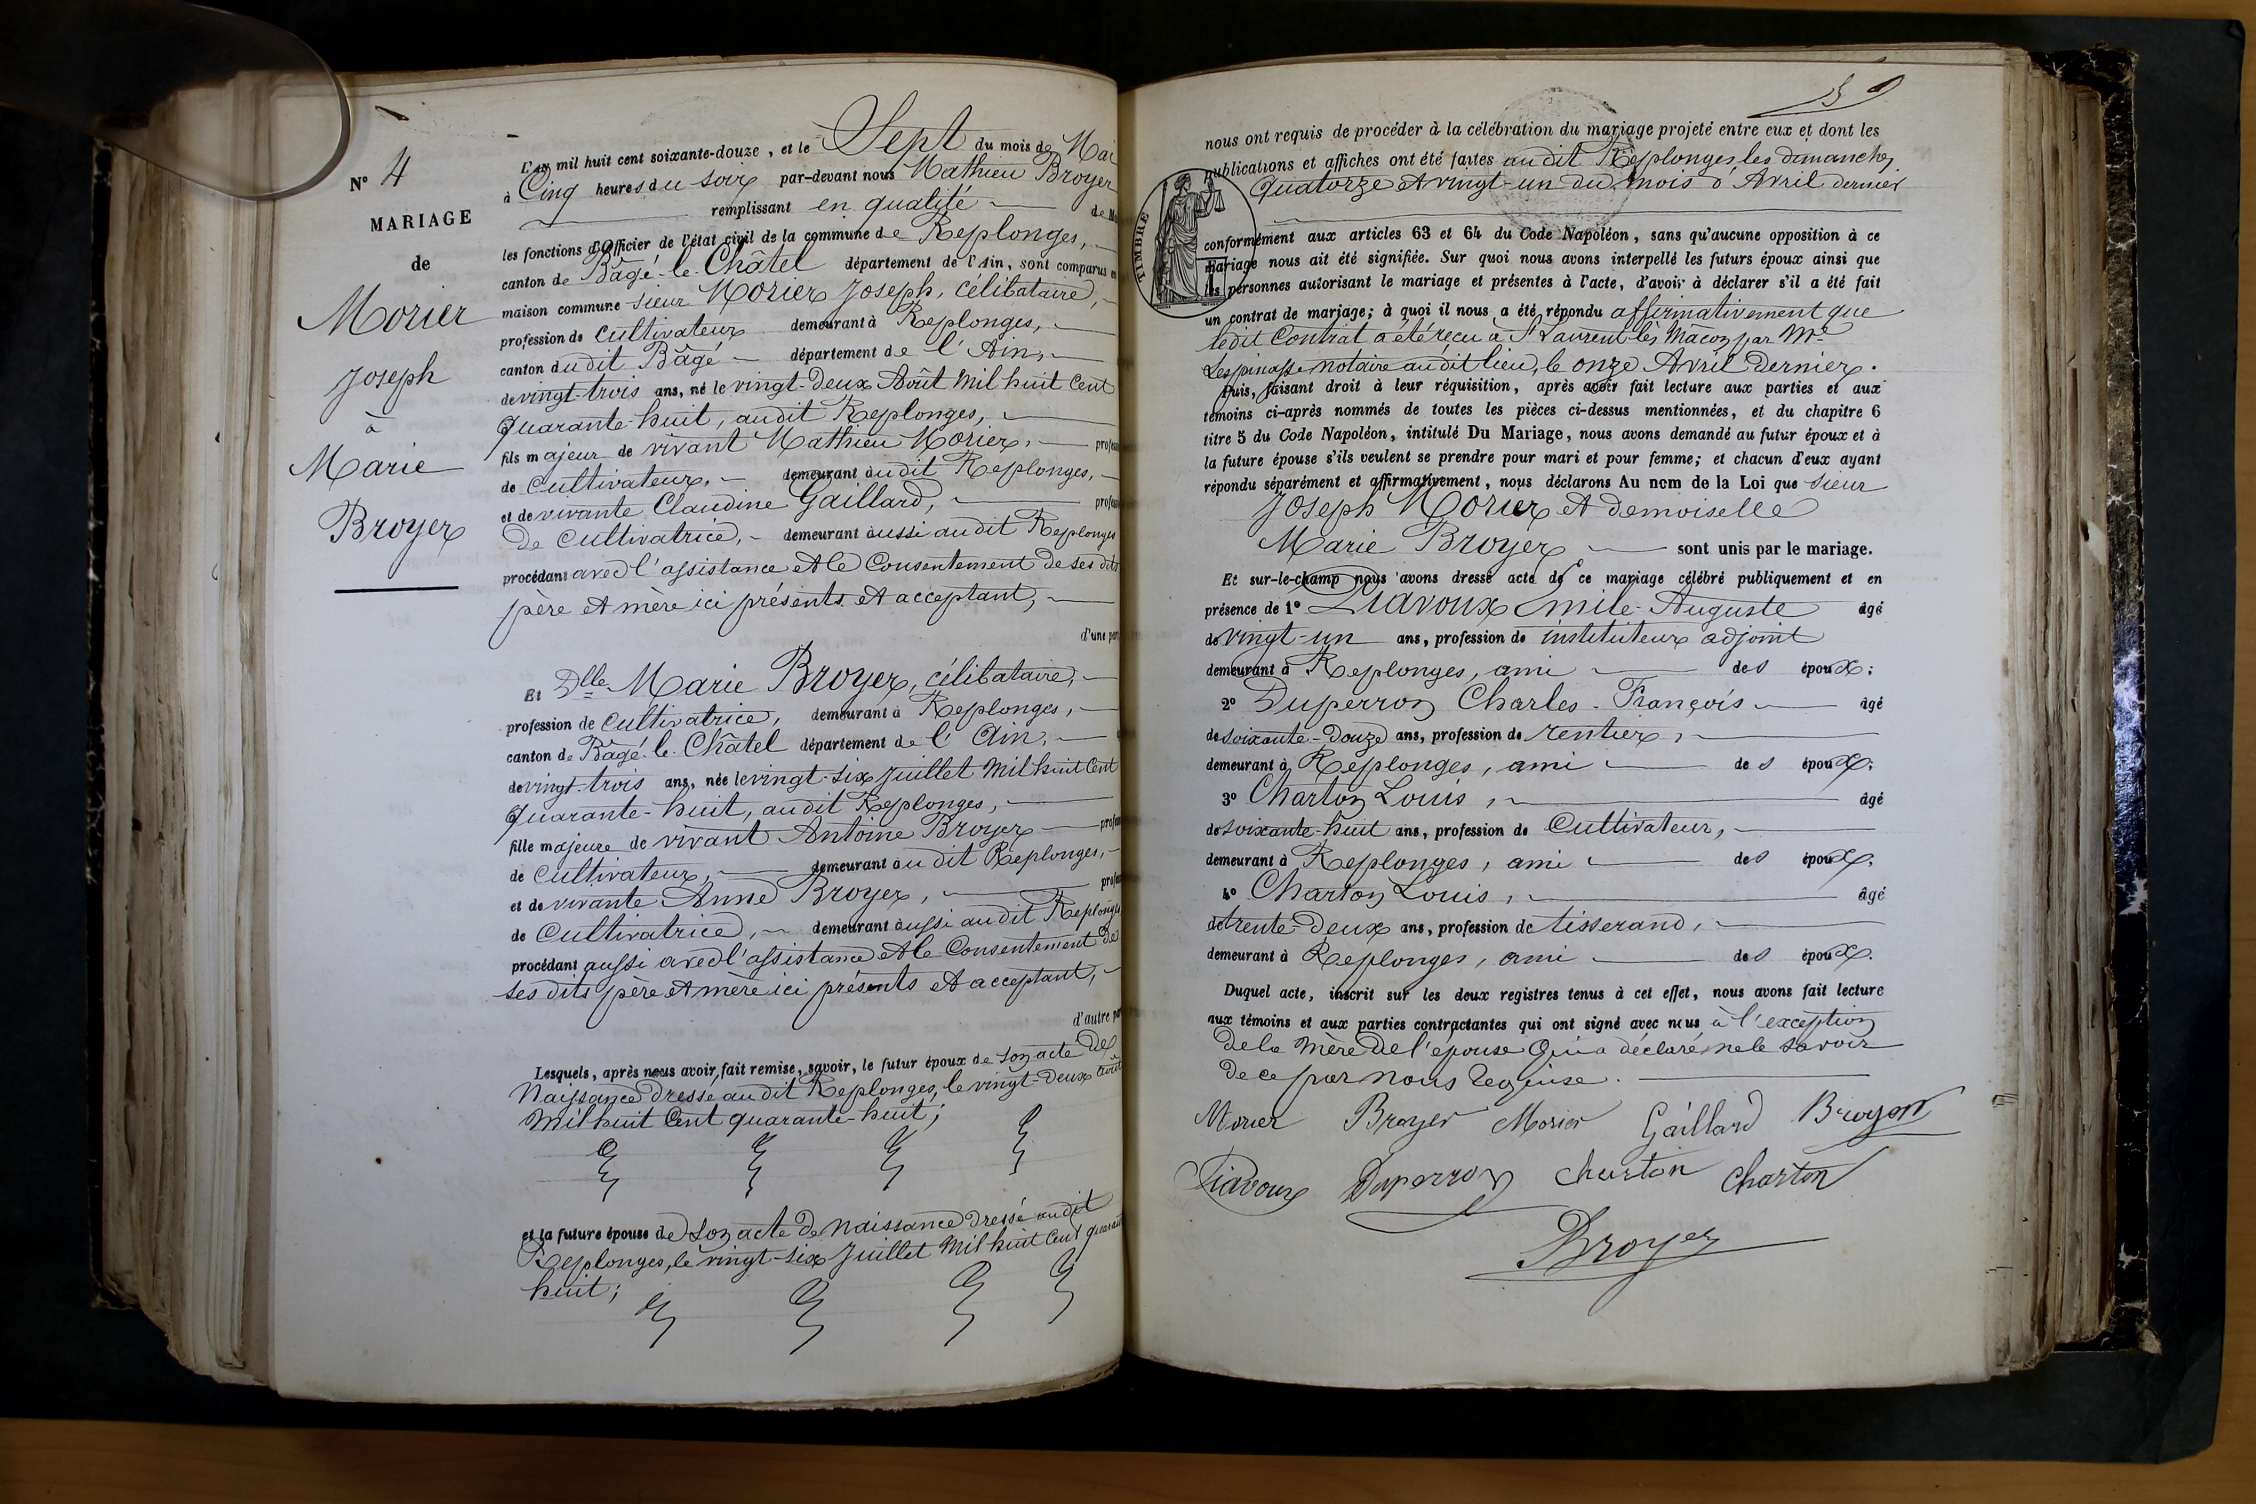 N° 4
MARIAGE
de
Morier
Joseph
à
Marie
Broyer
L'an mil huit cent soixante-douze, et le Sept du mois de Mai
à Cinq heures du soir par-devant nous Mathieu Broyer
remplissant en qualité de
les fonctions d'Officier de l'état civil de la commune de Replonges,
canton de Bâgé-le-Châtel département de l'Ain, sont comparus en
maison commune sieur Morier Joseph, célibataire,
profession de cultivateur demeurant à Replonges,
canton du dit Bâgé département de l'Ain,
de vingt-trois ans, né le vingt-deux Août mil huit cent
quarante-huit, audit Replonges,
fils majeur de vivant Mathieu Morier,
de cultivateur, demeurant audit Replonges,
et de vivante Claudine Gaillard,
de cultivatrice, demeurant aussi audit Replonges
procédant avec l'assistance et le consentement de ses dits
père et mère ici présents et acceptant,
d'une par
Et Dlle Marie Broyer, célibataire,
profession de cultivatrice, demeurant à Replonges,
canton de Bâgé-le-Châtel département de l'Ain,
de vingt-trois ans, née le vingt-six Juillet mil huit cent
quarante-huit, audit Replonges,
fille majeure de vivant Antoine Broyer
de cultivateur, demeurant au dit Replonges,
et de vivante Anne Broyer,
de cultivatrice, demeurant aussi audit Replonges
procédant aussi avec l'assistance et le consentement de
ses dits père et mère ici présents et acceptant,
d'autre par
Lesquels, après nous avoir fait remise, savoir, le futur époux de son acte de
Naissance dressé audit Replonges, le vingt-deux août
mil huit cent quarante-huit;
et la future épouse de son acte de naissance dressé audit
Replonges, le vingt-six Juillet mil huit cent quarante
huit;
nous ont requis de procéder à la célébration du mariage projeté entre eux et dont les
publications et affiches ont été faites audit Replonges les dimanches
quatorze et vingt-un du mois d'Avril dernier
TIMBRE
conformément aux articles 63 et 64 du Code Napoléon, sans qu'aucune opposition à ce
mariage nous ait été signifiée. Sur quoi nous avons interpellé les futurs époux ainsi que
les personnes autorisant le mariage et présentes à l'acte, d'avoir à déclarer s'il a été fait
un contrat de mariage; à quoi il nous a été répondu affirmativement que
ledit contrat a été reçu à St Laurent lès Mâcon par Me
Lespinasse notaire audit lieu, le onze Avril dernier.
Puis, faisant droit à leur réquisition, après avoir fait lecture aux parties et aux
témoins ci-après nommés de toutes les pièces ci-dessus mentionnées, et du chapitre 6
titre 5 du Code Napoléon, intitulé Du Mariage, nous avons demandé au futur époux et à
la future épouse s'ils veulent se prendre pour mari et pour femme; et chacun d'eux ayant
répondu séparément et affirmativement, nous déclarons Au nom de la Loi que sieur
Joseph Morier et demoiselle
Marie Broyer sont unis par le mariage.
Et sur-le-champ nous avons dressé acte de ce mariage célébré publiquement et en
présence de 1° Piavoux Emile-Auguste âgé
de vingt-un ans, profession de instituteur adjoint
demeurant à Replonges, ami des époux;
2° Duperron Charles-François âgé
de soixante-douze ans, profession de rentier,
demeurant à Replonges, ami des époux;
3° Charton Louis, âgé
de soixante-huit ans, profession de Cultivateur,
demeurant à Replonges, ami des époux;
4° Charton Louis, âgé
de trente-deux ans, profession de tisserand,
demeurant à Replonges, ami des époux.
Duquel acte, inscrit sur les deux registres tenus à cet effet, nous avons fait lecture
aux témoins et aux parties contractantes qui ont signé avec nous à l'exception
de la mère de l'épouse qui a déclaré ne le savoir
de ce par nous requise.
Morier Broyer Morier Gaillard Broyer
Piavoux Duperron Charton Charton
Broyer